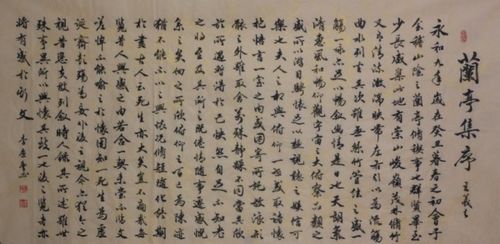 蘭亭集序
王羲之
永和九年歲在癸丑暮春之初會于
會稽山陰之蘭亭修禊事也群賢畢至
少長咸集此地有崇山峻嶺茂林修竹
又有清流激湍映帶左右引以為流觴
曲水列坐其次雖無絲竹管弦之盛一
觴一詠亦足以暢敘幽情是日也天朗氣
清惠風和暢仰觀宇宙之大俯察品類之
盛所以遊目騁懷足以極視聽之娛信可
樂也夫人之相與俯仰一世或取諸懷
抱悟言一室之內或因寄所託放浪形
骸之外雖取舍萬殊靜躁不同當其欣
於所遇暫得於己快然自足不知老
之將至及其所之既倦情隨事遷感慨
係之矣向之所欣俯仰之間已為陳跡
猶不能不以之興懷況修短隨化終期
於盡古人云死生亦大矣豈不痛哉每
覽昔人興感之由若合一契未嘗不臨文
嗟悼不能喻之於懷固知一死生為虛
誕齊彭殤為妄作後之視今亦猶今之
視昔悲夫故列敘時人錄其所述雖世
殊事異所以興懷其致一也後之覽者亦
將有感於斯文